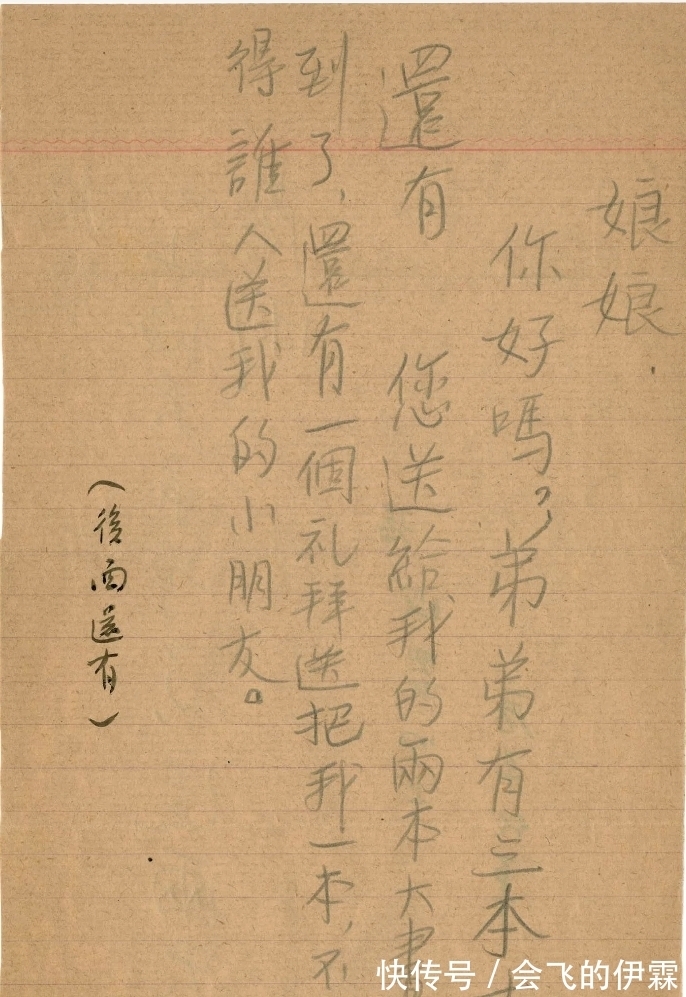 娘娘.
你好嗎？弟弟有三本
還有 您送給我的兩本大書
到了，還有一個礼拜送把我一本，不
得誰人送我的小朋友。
（後面還有）
快传号 / 会飞的伊霖